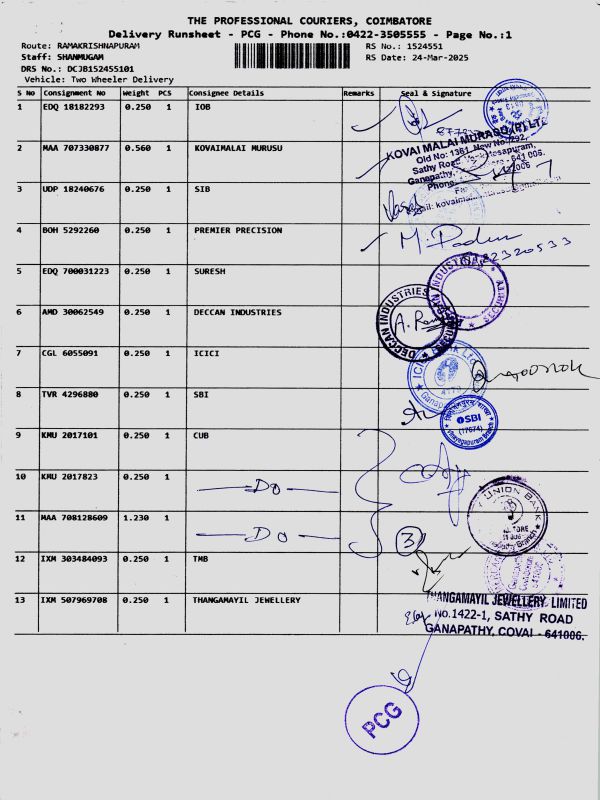 THE PROFESSIONAL COURIERS, COIMBATORE
Delivery Runsheet - PCG - Phone No.:0422-3505555 - Page No.:1
Route: RAMAKRISHNAPURAM
RS No.: 1524551
Staff: SHANMUGAM
RS Date: 24-Mar-2025
DRS No.: DCJB152455101
Vehicle: Two Wheeler Delivery
S No Consignment No Weight PCS Consignee Details Remarks Seal & Signature
1 EDQ 18182293 0.250 1 IOB
2 MAA 707330877 0.560 1 KOVAIMALAI MURUSU
KOVAI MALAI MURASU (P) LTD
Old No: 1361, New No: 292,
Sathy Road
Ganapathy,
Phone
3 UDP 18240676 0.250 1 SIB
4 BOH 5292260 0.250 1 PREMIER PRECISION
5 EDQ 700031223 0.250 1 SURESH
6 AMD 30062549 0.250 1 DECCAN INDUSTRIES
DECCAN INDUSTRIES
7 CGL 6055091 0.250 1 ICICI
8 TVR 4296880 0.250 1 SBI
SBI
(17674)
9 KMU 2017101 0.250 1 CUB
10 KMU 2017823 0.250 1 — Do —
11 MAA 708128609 1.230 1 — Do —
3
UNION BANK
12 IXM 303484093 0.250 1 TMB
13 IXM 507969708 0.250 1 THANGAMAYIL JEWELLERY
THANGAMAYIL JEWELLERY LIMITED
No.1422-1, SATHY ROAD
GANAPATHY, COVAI - 641006.
PCG